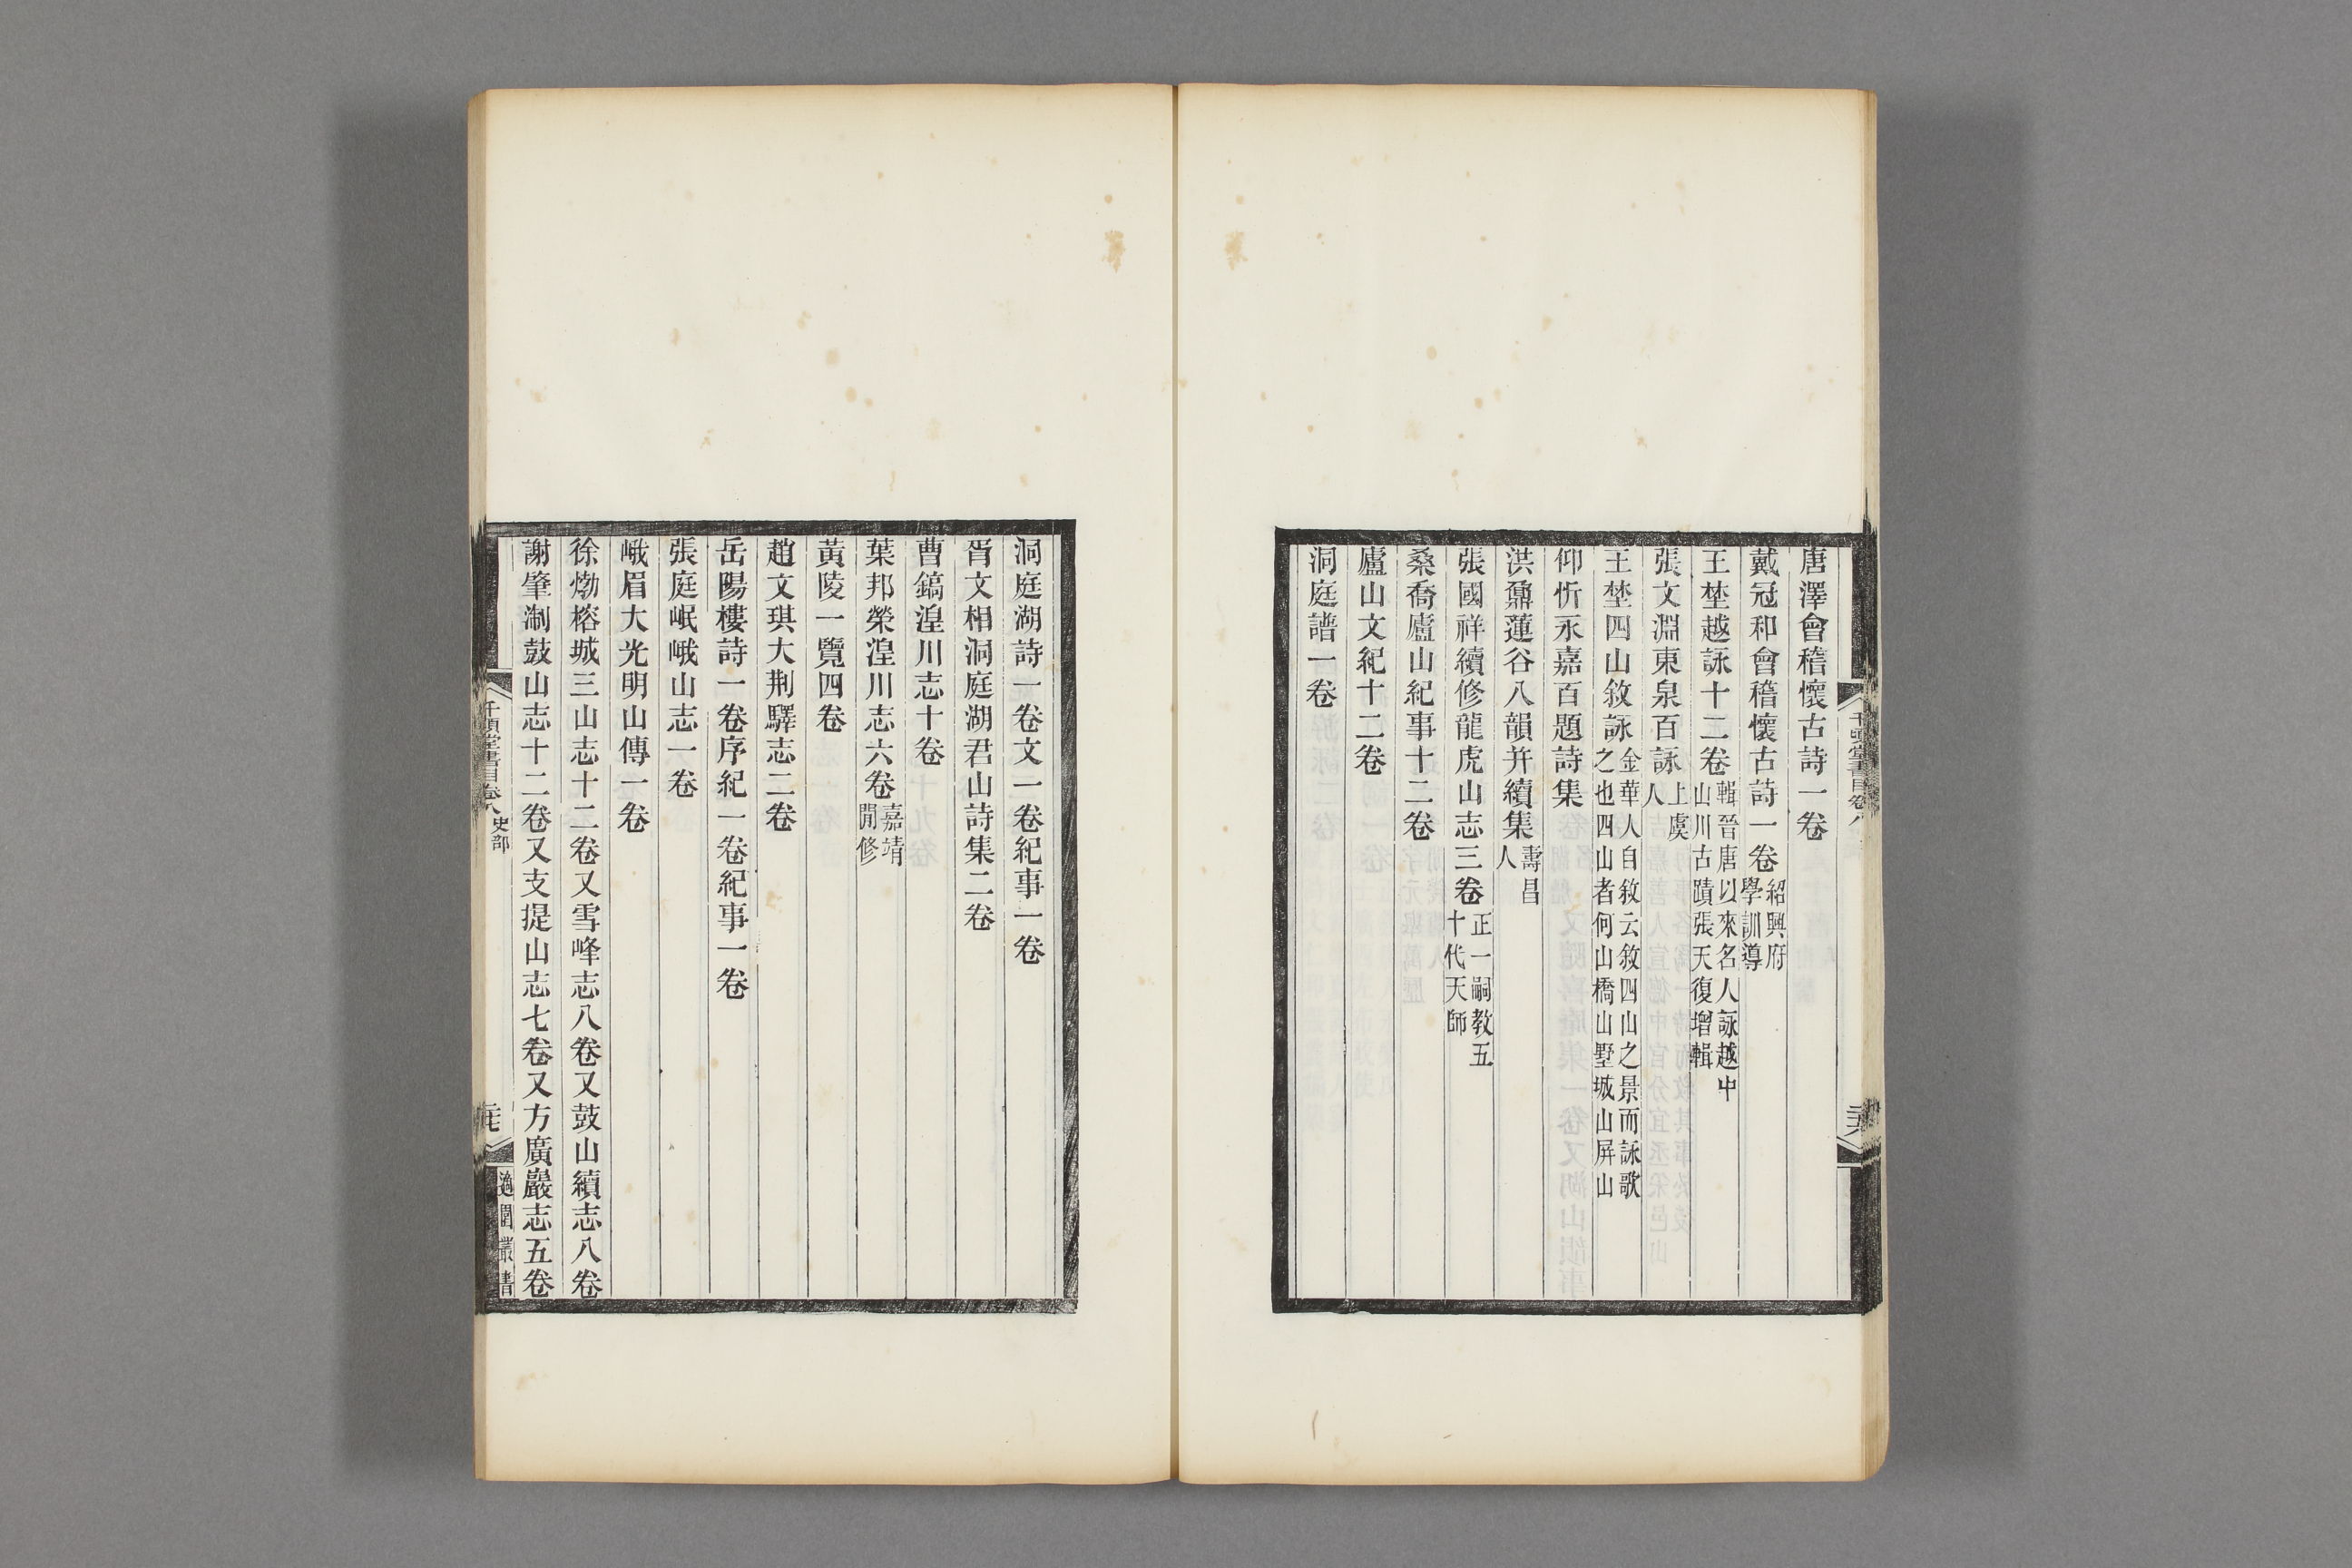 唐澤會稽懷古詩一卷
戴冠和會稽懷古詩一卷紹興府學訓導
王埜越詠十二卷輯晉唐以來名人詠越中山川古蹟張天復增輯
張文淵東泉百詠上虞人
王埜四山敘詠金華人自敘云敘四山之景而詠歌之也四山者何山橋山墅城山屏山
仰忻永嘉百題詩集
洪鼐蓮谷八韻并續集壽昌人
張國祥續修龍虎山志三卷正一嗣教五十代天師
桑喬廬山紀事十二卷
廬山文紀十二卷
洞庭譜一卷
千頃堂書目卷八
洞庭湖詩一卷文一卷紀事一卷
胥文相洞庭湖君山詩集二卷
曹鎬湟川志十卷
葉邦榮湟川志六卷嘉靖閒修
黃陵一覽四卷
趙文琪大荆驛志二卷
岳陽樓詩一卷序紀一卷紀事一卷
張庭岷峨山志一卷
峨眉大光明山傳一卷
徐𤊹榕城三山志十二卷又雪峰志八卷又鼓山續志八卷
謝肇淛鼓山志十二卷又支提山志七卷又方廣巖志五卷
千頃堂書目卷八 史部 適園叢書